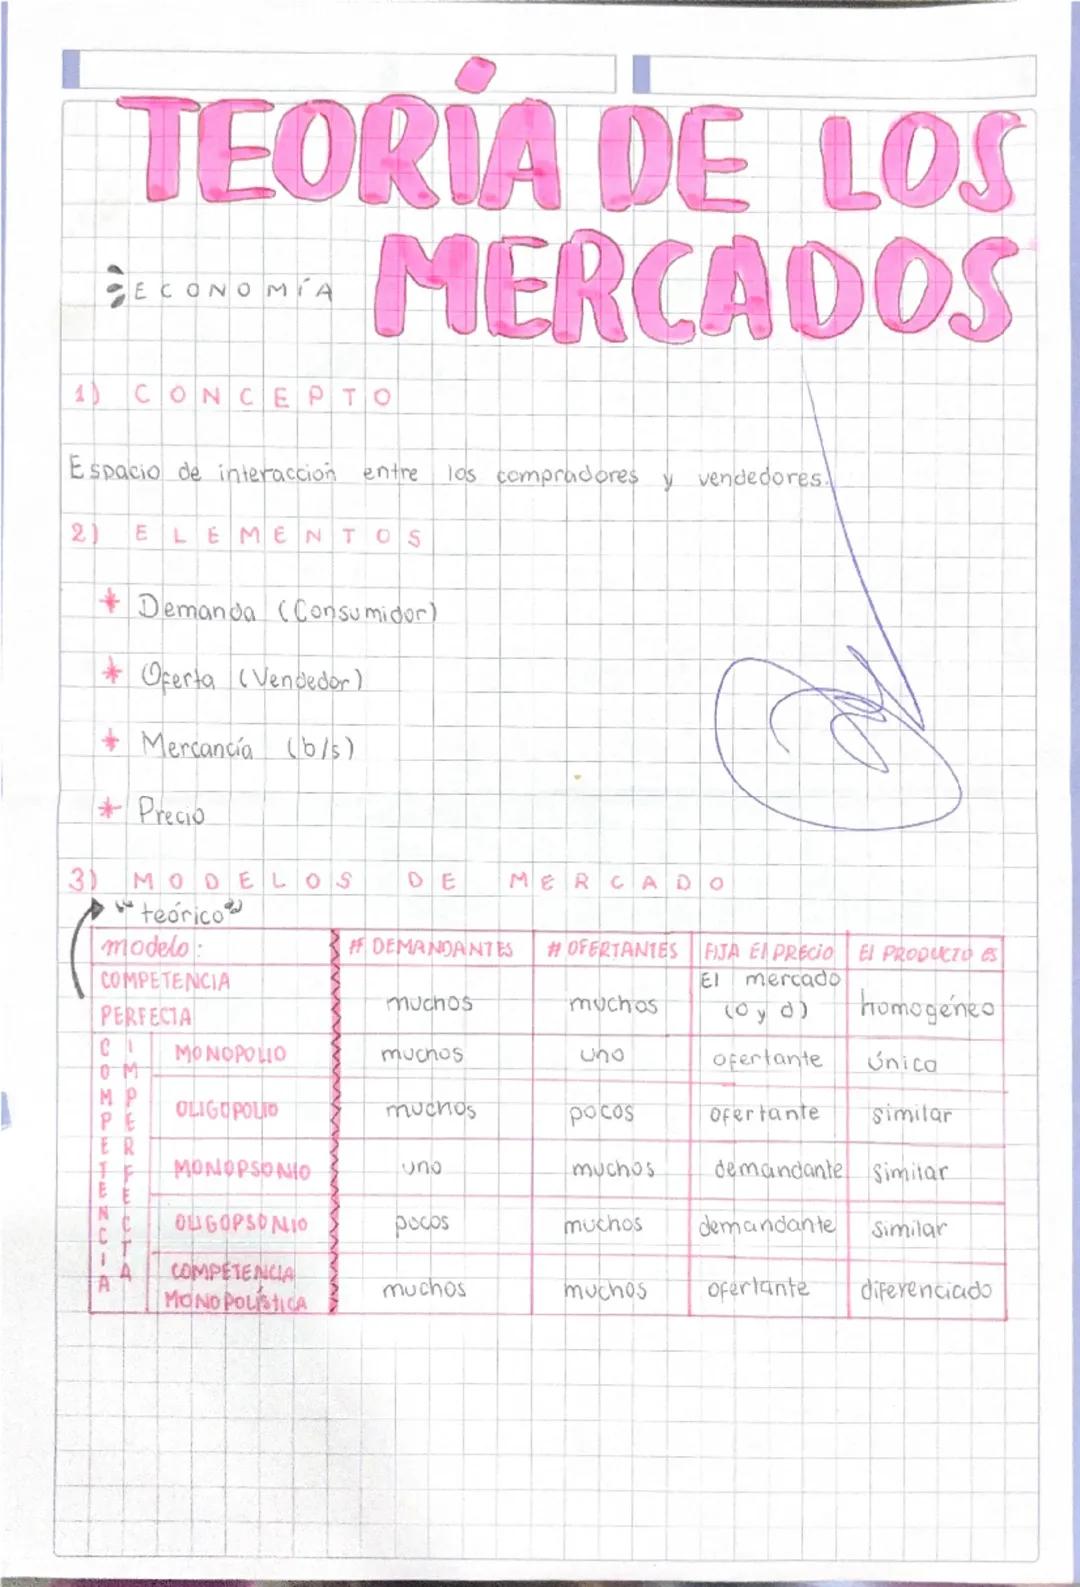 TEORÍA DE LOS
MERCADOS
ECONOMÍA
1) CONCEPTO
Espacio de interacción entre los compradores y vendedores.
2) ELEMENTOS
* Demanda (Consumidor)
* Oferta (Vendedor)
* Mercancía (b/s)
* Precio
3) MODELOS DE MERCADO
"teórico"
modelo: # DEMANDANTES # OFERTANTES FIJA El PRECIO El PRODUCTO ES
COMPETENCIA PERFECTA muchos muchos El mercado (o y d) homogéneo
COMPETENCIA IMPERFECTA
MONOPOLIO muchos uno ofertante único
OLIGOPOLIO muchos pocos ofertante similar
MONOPSONIO uno muchos demandante similar
OLIGOPSONIO pocos muchos demandante similar
COMPETENCIA MONOPOLÍSTICA muchos muchos ofertante diferenciado